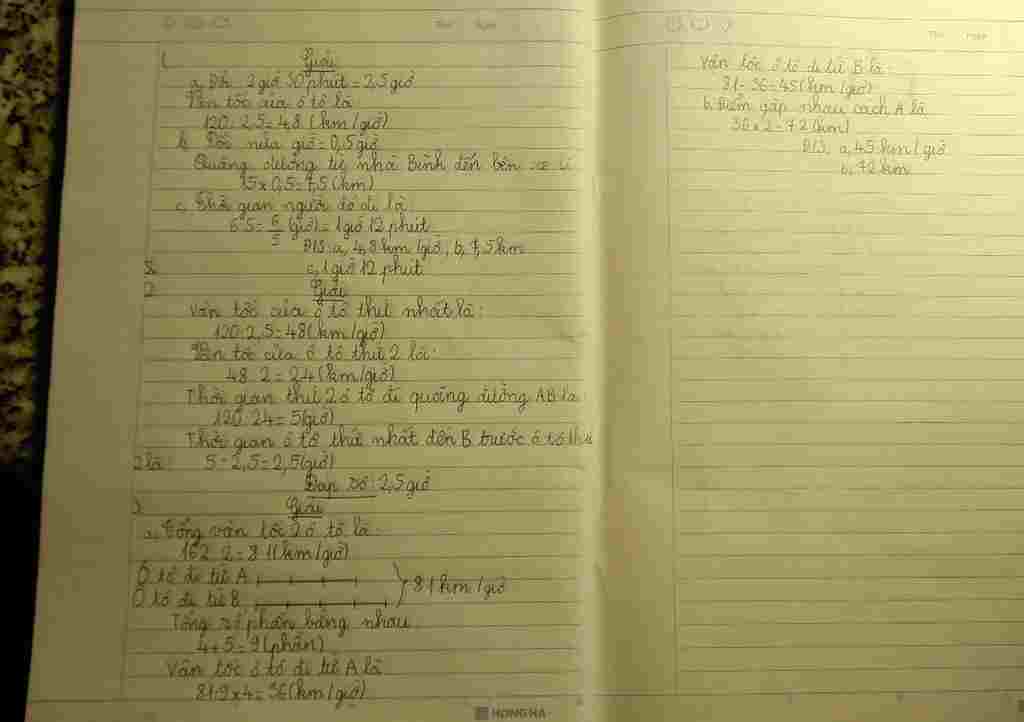 1. Giải
a, Đổi 2 giờ 30 phút = 2,5 giờ
Vận tốc của ô tô là
120 : 2,5 = 4,8 (km/giờ)
b, Đổi nửa giờ = 0,5 giờ
Quãng đường từ nhà Bình đến bến xe là
15 x 0,5 = 7,5 (km)
c, Thời gian người đó đi là
6 : 5 = 6/5 (giờ) = 1 giờ 12 phút
Đ/S: a, 4,8 km/giờ, b, 7,5 km
c, 1 giờ 12 phút
2. Giải
Vận tốc của ô tô thứ nhất là:
120 : 2,5 = 48 (km/giờ)
Vận tốc của ô tô thứ 2 là:
48 : 2 = 24 (km/giờ)
Thời gian thứ 2 ô tô đi quãng đường AB là
120 : 24 = 5 (giờ)
Thời gian ô tô thứ nhất đến B trước ô tô thứ
2 là: 5 - 2,5 = 2,5 (giờ)
Đáp số: 2,5 giờ
3. Giải
a, Tổng vận tốc 2 ô tô là:
162 : 2 = 81 (km/giờ)
Ô tô đi từ A
81 km/giờ
Ô tô đi từ B
Tổng số phần bằng nhau
4 + 5 = 9 (phần)
Vận tốc ô tô đi từ A là
81 : 9 x 4 = 36 (km/giờ)
HONG HA
Vận tốc ô tô đi từ B là:
81 - 36 = 45 (km/giờ)
b, Điểm gặp nhau cách A là
36 x 2 = 72 (km)
Đ/S: a, 45 km/giờ
b, 72 km